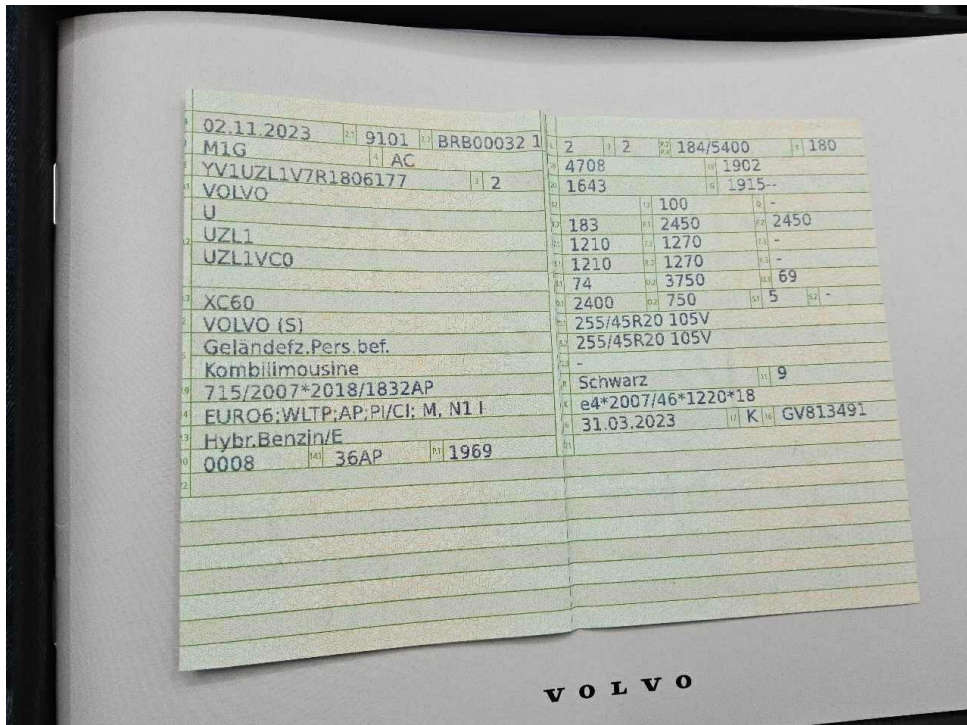 02.11.2023 2.1 9101 2.2 BRB00032 1
M1G 4 AC
YV1UZL1V7R1806177 3 2
VOLVO
U
UZL1
UZL1VC0
XC60
VOLVO (S)
Geländefz.Pers.bef.
Kombilimousine
715/2007*2018/1832AP
EURO6;WLTP;AP;PI/CI; M, N1 I
Hybr.Benzin/E
0008 14.1 36AP P.1 1969
22
2 2 184/5400 180
4708 1902
1643 G 1915--
100 -
183 2450 2450
1210 1270 -
1210 1270 -
74 3750 69
2400 750 S.1 5 S.2 -
255/45R20 105V
255/45R20 105V
-
Schwarz 11 9
e4*2007/46*1220*18
31.03.2023 17 K 16 GV813491
21
VOLVO